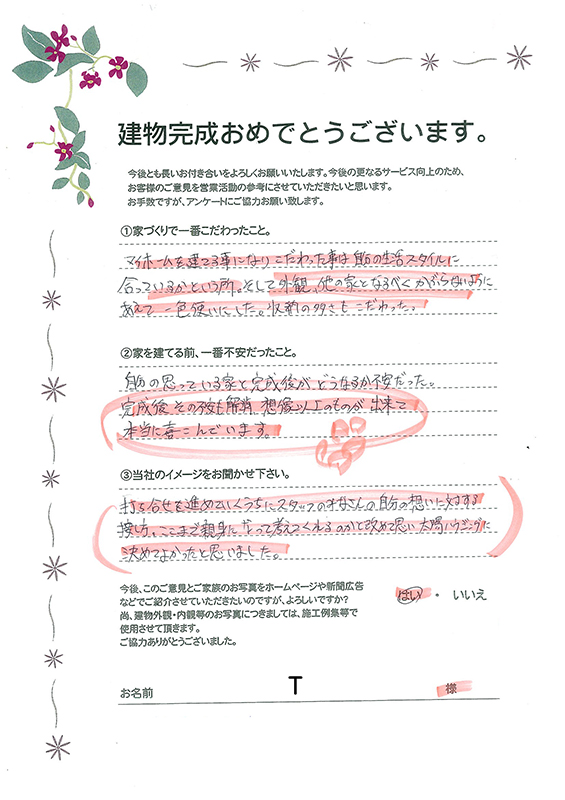 建物完成おめでとうございます。
今後とも長いお付き合いをよろしくお願いいたします。今後の更なるサービス向上のため、
お客様のご意見を営業活動の参考にさせていただきたいと思います。
お手数ですが、アンケートにご協力お願い致します。
①家づくりで一番こだわったこと。
マイホームを建てる事になりこだわった事は自分の生活スタイルに
合っているかという所。そして外観、他の家となるべくかぶらないように
あえて一色使いにした。収納の多さもこだわった。
②家を建てる前、一番不安だったこと。
自分の思っている家と完成後が、どうなるか不安だった。
完成後、その不安も解消、想像以上のものが出来て
本当に喜こんでいます。
③当社のイメージをお聞かせ下さい。
打ち合せを進めていくうちにスタッフのみなさんの自分の想いに対する
接し方、ここまで親身になって考えてくれるのかと改めて思い太陽ハウジングに
決めてよかったと思いました。
今後、このご意見とご家族のお写真をホームページや新聞広告
などでご紹介させていただきたいのですが、よろしいですか?
はい ・ いいえ
尚、建物外観・内観等のお写真につきましては、施工例集等で
使用させて頂きます。
ご協力ありがとうございました。
お名前 T 様